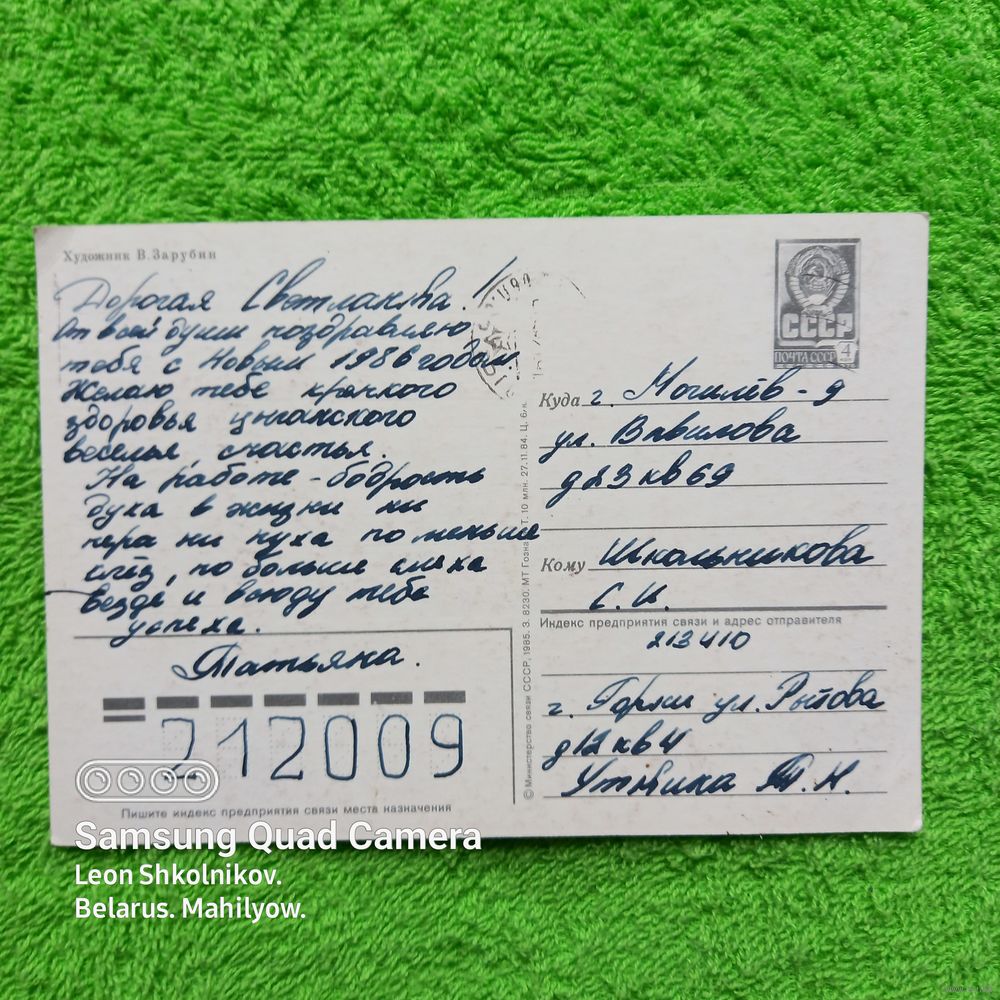 Художник В. Зарубин
Дорогая Светлановна!
От всей души поздравляю
тебя с Новым 1986 годом
Желаю тебе крепкого
здоровья цыганского
веселья, счастья.
На работе - бодрость
духа в жизни ни
пера ни пуха по меньше
слёз, по больше смеха
Везде и всюду тебе
успеха.
Татьяна.
212009
Пишите индекс предприятия связи места назначения
© Министерство связи СССР, 1985. З. 8230. МТ Гознака. Т. 10 млн. 27.11.84. Ц. 6 к.
СССР
ПОЧТА СССР 4
Куда г. Могилёв-9
ул. Вавилова
д23 кв 69
Кому Школьникова
С. И.
Индекс предприятия связи и адрес отправителя
213410
г. Горки ул. Рытова
д12 кв 4
Т. Н.
Samsung Quad Camera
Leon Shkolnikov.
Belarus. Mahilyow.